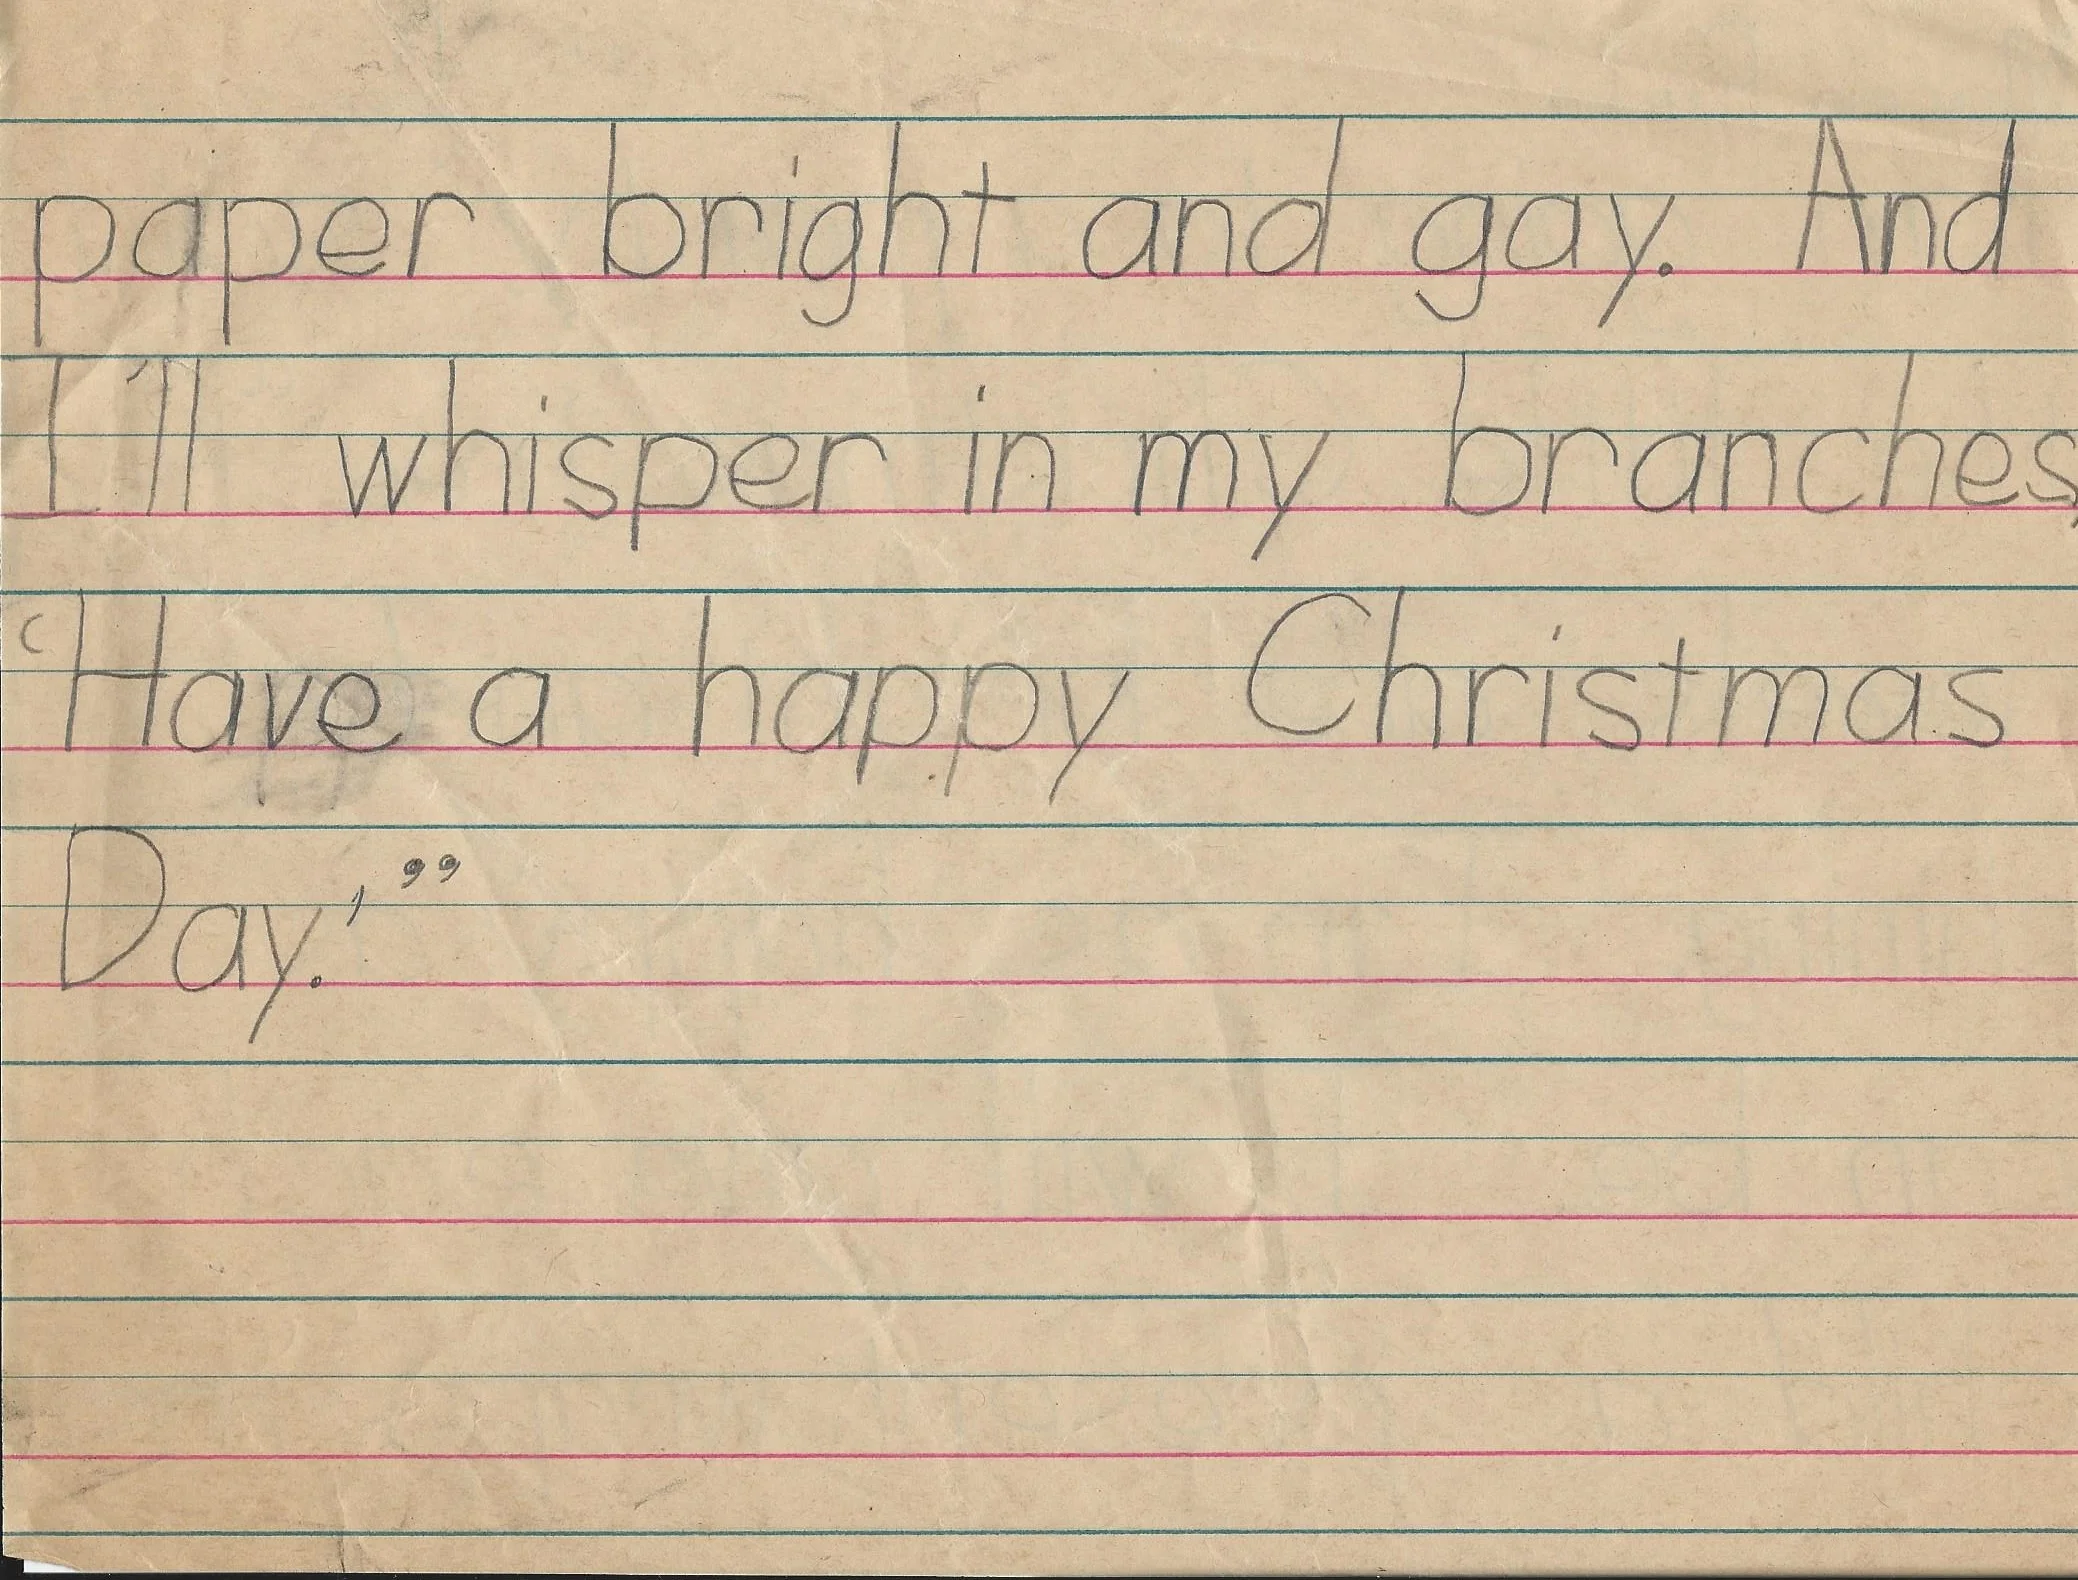 paper bright and gay. And
I'll whisper in my branches,
'Have a happy Christmas
Day.'”